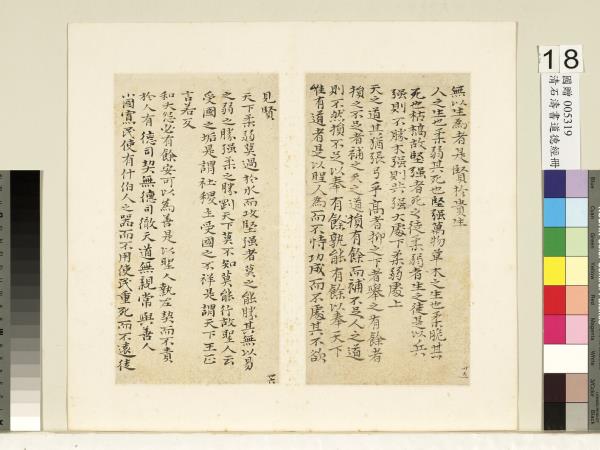 無以生為者是賢於貴生
人之生也柔弱其死也堅强萬物草木之生也柔脆其
死也枯槁故堅强者死之徒柔弱者生之徒是以兵
强則不勝木强則共强大處下柔弱處上
天之道其猶張弓乎高者抑之下者舉之有餘者
損之不足者補之天之道損有餘而補不足人之道
則不然損不足以奉有餘孰能有餘以奉天下
惟有道者是以聖人為而不恃功成而不處其不欲
見賢
天下柔弱莫過於水而攻堅强者莫之能勝其無以易
之弱之勝强柔之勝剛天下莫不知莫能行故聖人云
受國之垢是謂社稷主受國之不祥是謂天下王正
言若反
和大怨必有餘怨安可以為善是以聖人執左契而不責
於人有德司契無德司徹天道無親常與善人
小國寡民使有什伯人之器而不用使民重死而不遠徙
18
國贈 005319
清石濤書道德經冊
Blue
Cyan
Green
Yellow
Red
Magenta
White
3/Color
Black